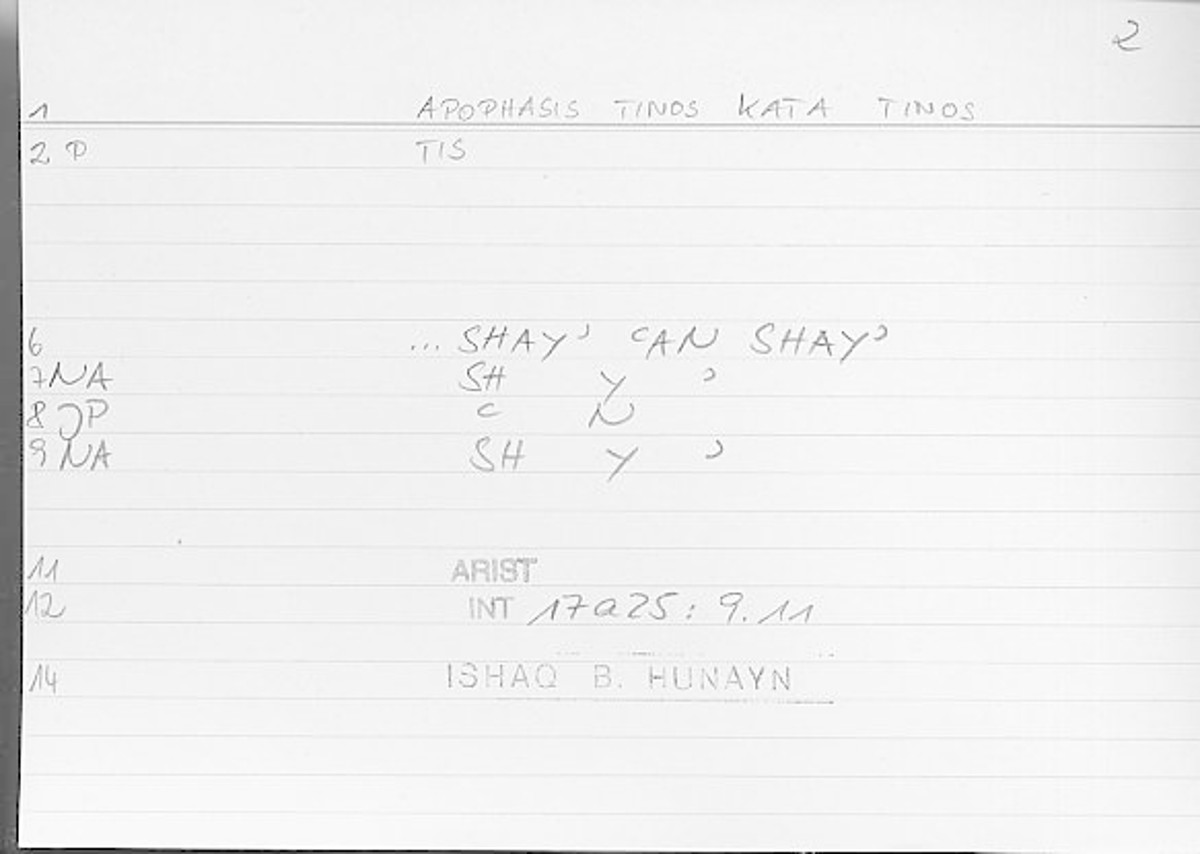 2
1 APOPHASIS TINOS KATA TINOS
2 P TIS
6 ... SHAYʾ ʿAN SHAYʾ
7 NA SH Y ʾ
8 JP ʿ N
9 NA SH Y ʾ
11 ARIST
12 INT 17a25: 9.11
14 ISHAQ B. HUNAYN